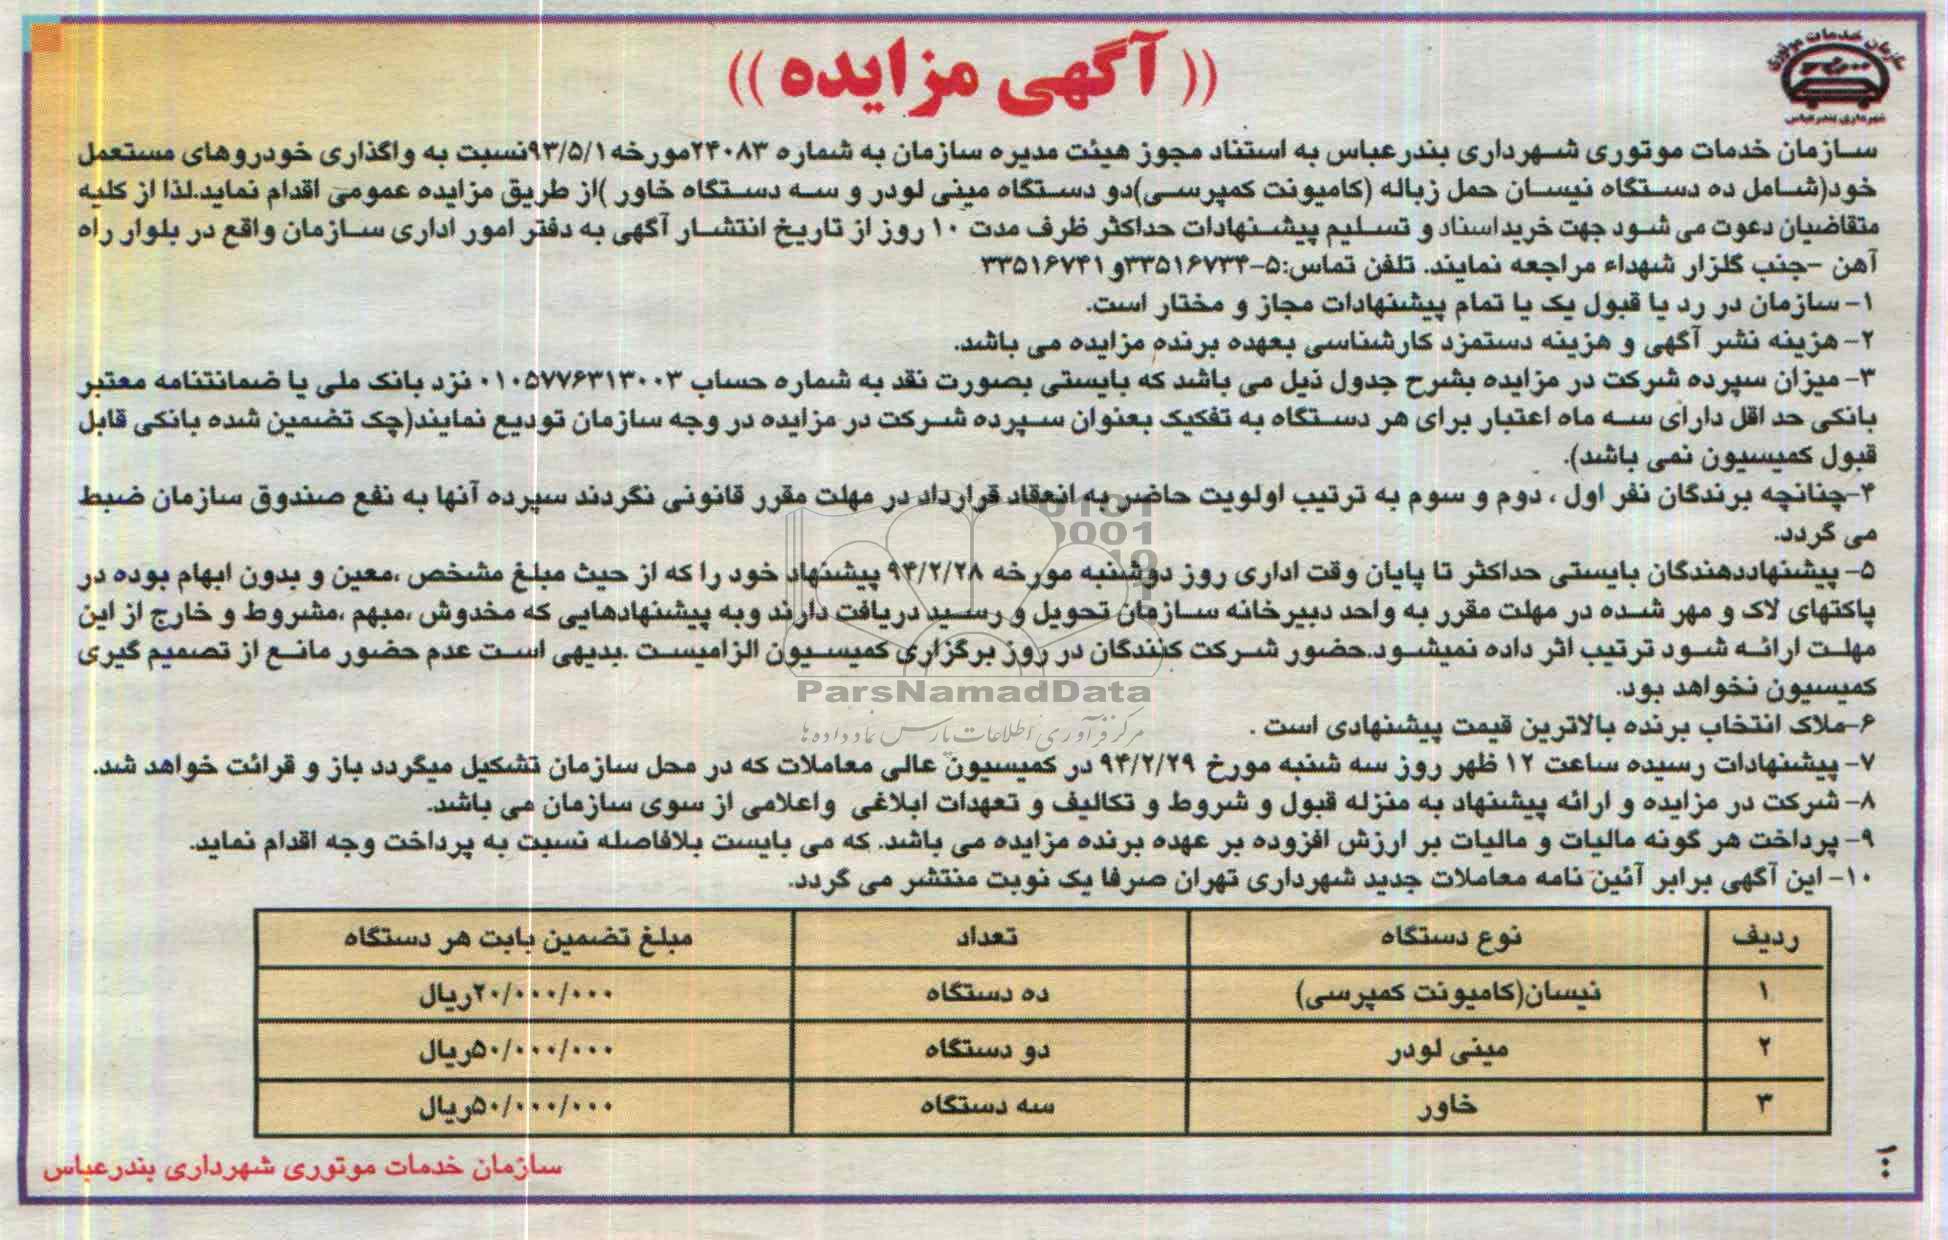 سازمان خدمات موتوری
شهرداری بندرعباس
(( آگهی مزایده ))
سازمان خدمات موتوری شهرداری بندرعباس به استناد مجوز هیئت مدیره سازمان به شماره ۲۴۰۸۳مورخه۹۳/۵/۱نسبت به واگذاری خودروهای مستعمل
خود(شامل ده دستگاه نیسان حمل زباله (کامیونت کمپرسی)دو دستگاه مینی لودر و سه دستگاه خاور )از طریق مزایده عمومی اقدام نماید.لذا از کلیه
متقاضیان دعوت می شود جهت خریداسناد و تسلیم پیشنهادات حداکثر ظرف مدت ۱۰ روز از تاریخ انتشار آگهی به دفتر امور اداری سازمان واقع در بلوار راه
آهن -جنب گلزار شهداء مراجعه نمایند. تلفن تماس:۵-۳۳۵۱۶۷۳۴و۳۳۵۱۶۷۴۱
۱- سازمان در رد یا قبول یک یا تمام پیشنهادات مجاز و مختار است.
۲- هزینه نشر آگهی و هزینه دستمزد کارشناسی بعهده برنده مزایده می باشد.
۳- میزان سپرده شرکت در مزایده بشرح جدول ذیل می باشد که بایستی بصورت نقد به شماره حساب ۰۱۰۵۷۷۶۳۱۳۰۰۳ نزد بانک ملی یا ضمانتنامه معتبر
بانکی حد اقل دارای سه ماه اعتبار برای هر دستگاه به تفکیک بعنوان سپرده شرکت در مزایده در وجه سازمان تودیع نمایند(چک تضمین شده بانکی قابل
قبول کمیسیون نمی باشد).
۴-چنانچه برندگان نفر اول ، دوم و سوم به ترتیب اولویت حاضر به انعقاد قرارداد در مهلت مقرر قانونی نگردند سپرده آنها به نفع صندوق سازمان ضبط
می گردد.
۵- پیشنهاددهندگان بایستی حداکثر تا پایان وقت اداری روز دوشنبه مورخه ۹۴/۲/۲۸ پیشنهاد خود را که از حیث مبلغ مشخص ،معین و بدون ابهام بوده در
پاکتهای لاک و مهر شده در مهلت مقرر به واحد دبیرخانه سازمان تحویل و رسید دریافت دارند وبه پیشنهادهایی که مخدوش ،مبهم ،مشروط و خارج از این
مهلت ارائه شود ترتیب اثر داده نمیشود.حضور شرکت کنندگان در روز برگزاری کمیسیون الزامیست .بدیهی است عدم حضور مانع از تصمیم گیری
کمیسیون نخواهد بود.
ParsNamadData
مرکز فرآوری اطلاعات پارس نماد داده ها
۶-ملاک انتخاب برنده بالاترین قیمت پیشنهادی است .
۷- پیشنهادات رسیده ساعت ۱۲ ظهر روز سه شنبه مورخ ۹۴/۲/۲۹ در کمیسیون عالی معاملات که در محل سازمان تشکیل میگردد باز و قرائت خواهد شد.
۸- شرکت در مزایده و ارائه پیشنهاد به منزله قبول و شروط و تکالیف و تعهدات ابلاغی واعلامی از سوی سازمان می باشد.
۹- پرداخت هر گونه مالیات و مالیات بر ارزش افزوده بر عهده برنده مزایده می باشد. که می بایست بلافاصله نسبت به پرداخت وجه اقدام نماید.
۱۰- این آگهی برابر آئین نامه معاملات جدید شهرداری تهران صرفا یک نوبت منتشر می گردد.
ردیف نوع دستگاه تعداد مبلغ تضمین بابت هر دستگاه
۱ نیسان(کامیونت کمپرسی) ده دستگاه ۲۰/۰۰۰/۰۰۰ریال
۲ مینی لودر دو دستگاه ۵۰/۰۰۰/۰۰۰ریال
۳ خاور سه دستگاه ۵۰/۰۰۰/۰۰۰ریال
سازمان خدمات موتوری شهرداری بندرعباس
۱۰۰